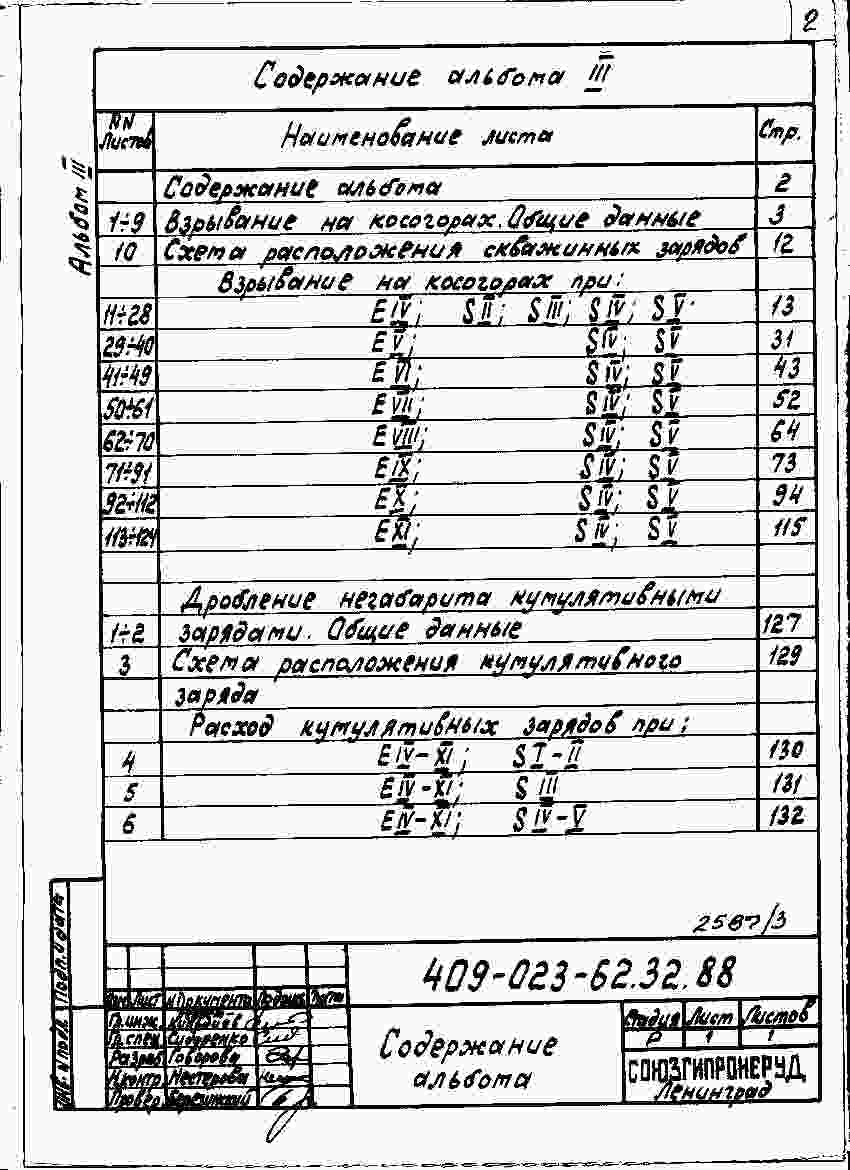 2
Содержание альбома III
NN Листов Наименование листа Стр.
Альбом III
Содержание альбома 2
1÷9 Взрывание на косогорах. Общие данные 3
10 Схема расположения скважинных зарядов 12
Взрывание на косогорах при:
11÷28 E IV; S II; S III; S IV; S V 13
29÷40 E V; S IV; S V 31
41÷49 E VI; S IV; S V 43
50÷61 E VII; S IV; S V 52
62÷70 E VIII; S IV; S V 64
71÷91 E IX; S IV; S V 73
92÷112 E X; S IV; S V 94
113÷124 E XI; S IV; S V 115
Дробление негабарита кумулятивными
1÷2 зарядами. Общие данные 127
3 Схема расположения кумулятивного 129
заряда
Расход кумулятивных зарядов при:
4 E IV-XI; S I-II 130
5 E IV-XI; S III 131
6 E IV-XI; S IV-V 132
2587/3
409-023-62.32.88
Изм. Лист N Документа Подпись Дата
Гл.инж.
Гл.спец. Сидоренко
Разраб. Говорова
Н.контр. Нестерова
Провер.
Содержание
альбома
Стадия Лист Листов
Р 1 1
СОЮЗГИПРОНЕРУД
Ленинград
Инв. N подл. Подп. и дата